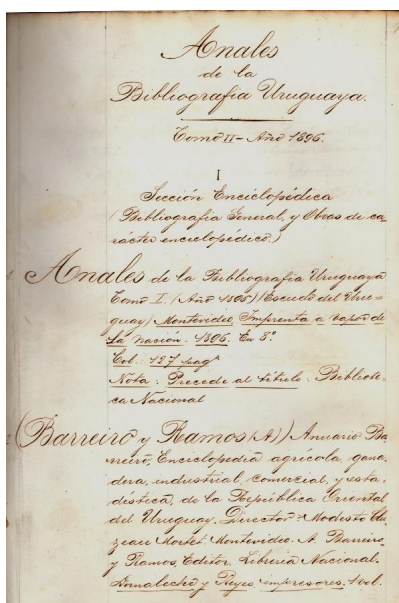 Anales
de la
Bibliografía Uruguaya.
Tomo II - Año 1896.
I
Sección Enciclopédica
(Bibliografía General, y Obras de ca-
rácter enciclopédico.)
Anales de la Bibliografía Uruguaya
Tomo I. (Año 1895) (Escudo del Uru-
guay) Montevideo Imprenta a vapor de
La Nación - 1896. En 8º
Col. 127 pag.
Nota: Precede al título: Bibliote-
ca Nacional
(Barreiro y Ramos (A)) Anuario Ba-
rreiro, Enciclopedia agrícola, gana-
dera, industrial, comercial, y esta-
dística, de la República Oriental
del Uruguay, Director: Modesto Clu-
zeau Mortet. Montevideo. A. Barreiro
y Ramos, Editor. Librería Nacional.
Dornaleche y Reyes impresores. 1 vol.